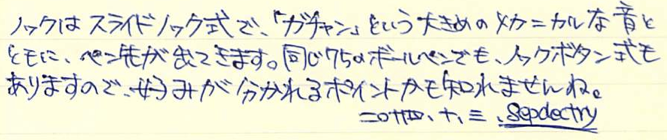 ノックはスライドノック式で、「ガチャン」という大きめのメカニカルな音と
ともに、ペン先が出てきます。同じ75のボールペンでも、ノックボタン式も
ありますので、好みが分かれるポイントかも知れませんね。
二〇一四、十、三、